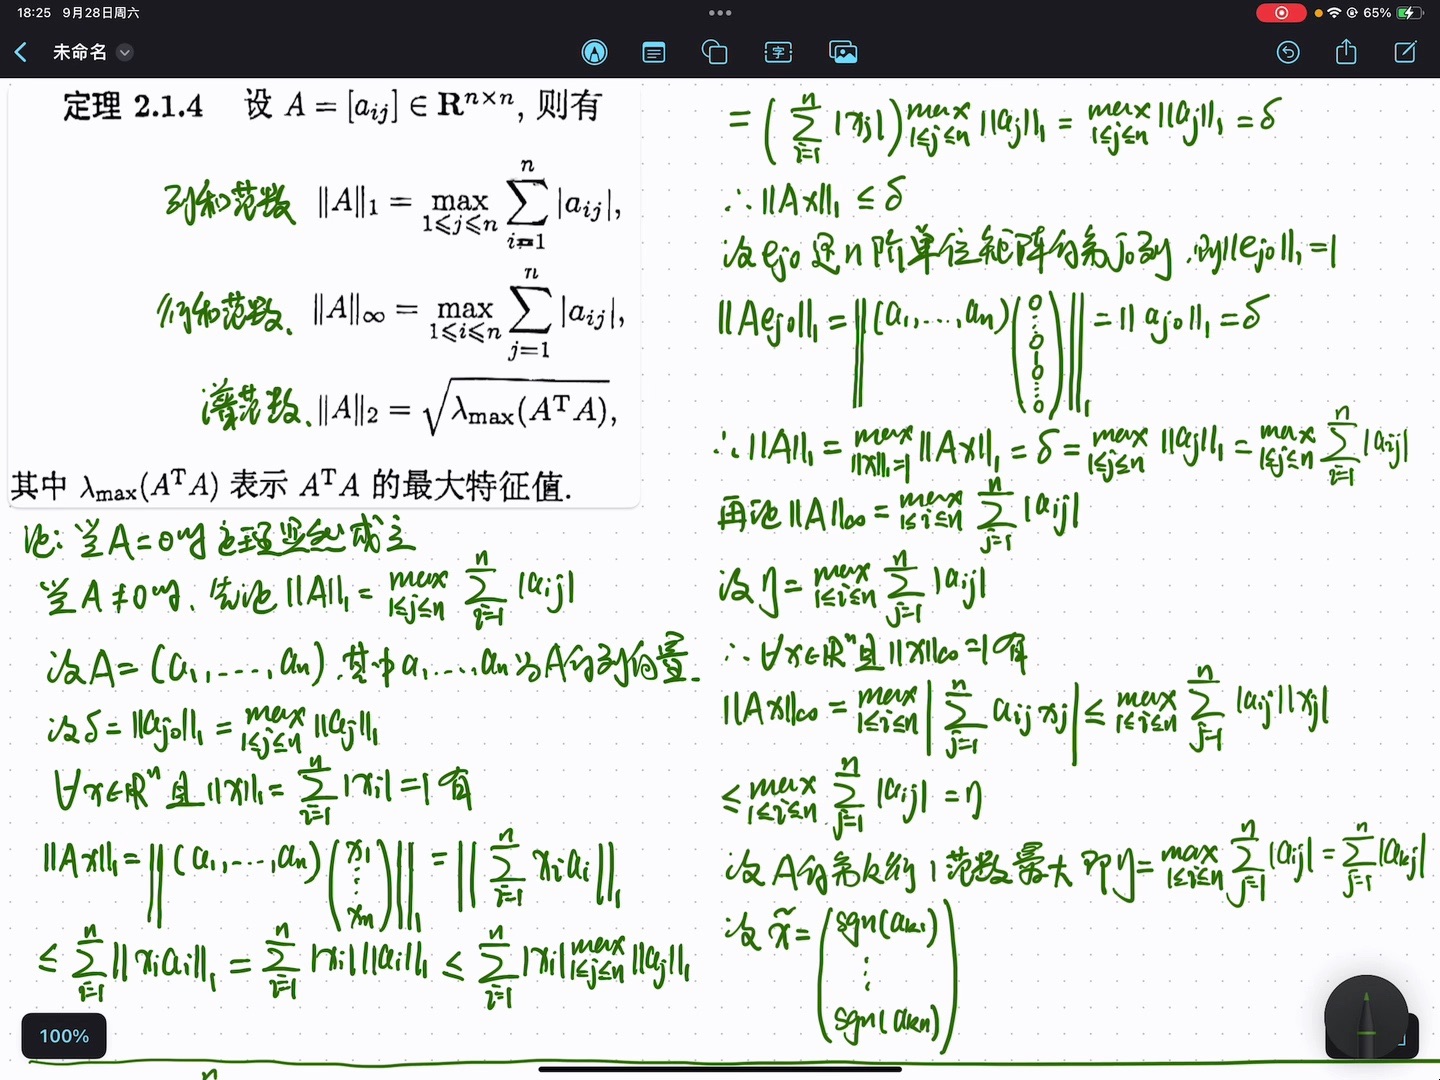 18:25 9月28日周六
65%
未命名
定理 2.1.4 设 A = [a_{ij}] ∈ R^{n×n}, 则有
列和范数 ‖A‖₁ = max_{1≤j≤n} ∑_{i=1}^{n} |a_{ij}|,
行和范数、 ‖A‖_∞ = max_{1≤i≤n} ∑_{j=1}^{n} |a_{ij}|,
谱范数、 ‖A‖₂ = √(λ_max(AᵀA)),
其中 λ_max(AᵀA) 表示 AᵀA 的最大特征值.
证: 当A=0时定理显然成立
当A≠0时、先证‖A‖₁ = max_{1≤j≤n} ∑_{i=1}^{n} |a_{ij}|
设A=(a₁,…,aₙ).其中a₁,…,aₙ为A的列向量.
设δ=‖a_{j0}‖₁ = max_{1≤j≤n} ‖a_j‖₁
∀x∈ℝⁿ且‖x‖₁ = ∑_{i=1}^{n} |x_i| = 1 有
‖Ax‖₁ = ‖(a₁,…,aₙ)(x₁ ⋮ xₙ)‖₁ = ‖∑_{i=1}^{n} x_i a_i‖₁
≤ ∑_{i=1}^{n} ‖x_i a_i‖₁ = ∑_{i=1}^{n} |x_i|‖a_i‖₁ ≤ ∑_{i=1}^{n} |x_i| max_{1≤j≤n} ‖a_j‖₁
100%
= (∑_{i=1}^{n} |x_j|) max_{1≤j≤n} ‖a_j‖₁ = max_{1≤j≤n} ‖a_j‖₁ = δ
∴‖Ax‖₁ ≤ δ
设e_{j0}是n阶单位矩阵的第j₀列.则‖e_{j0}‖₁=1
‖Ae_{j0}‖₁ = ‖(a₁,…,aₙ)(0 ⋮ 0 1 0 ⋮ 0)‖₁ = ‖a_{j0}‖₁ = δ
∴‖A‖₁ = max_{‖x‖₁=1} ‖Ax‖₁ = δ = max_{1≤j≤n} ‖a_j‖₁ = max_{1≤j≤n} ∑_{i=1}^{n} |a_{ij}|
再证‖A‖_∞ = max_{1≤i≤n} ∑_{j=1}^{n} |a_{ij}|
设η = max_{1≤i≤n} ∑_{j=1}^{n} |a_{ij}|
∴∀x∈ℝⁿ且‖x‖_∞=1有
‖Ax‖_∞ = max_{1≤i≤n} |∑_{j=1}^{n} a_{ij}x_j| ≤ max_{1≤i≤n} ∑_{j=1}^{n} |a_{ij}||x_j|
≤ max_{1≤i≤n} ∑_{j=1}^{n} |a_{ij}| = η
设A的第k行1范数最大即η = max_{1≤i≤n} ∑_{j=1}^{n} |a_{ij}| = ∑_{j=1}^{n} |a_{kj}|
设x̃ = (sgn(a_{k1}) ⋮ sgn(a_{kn}))